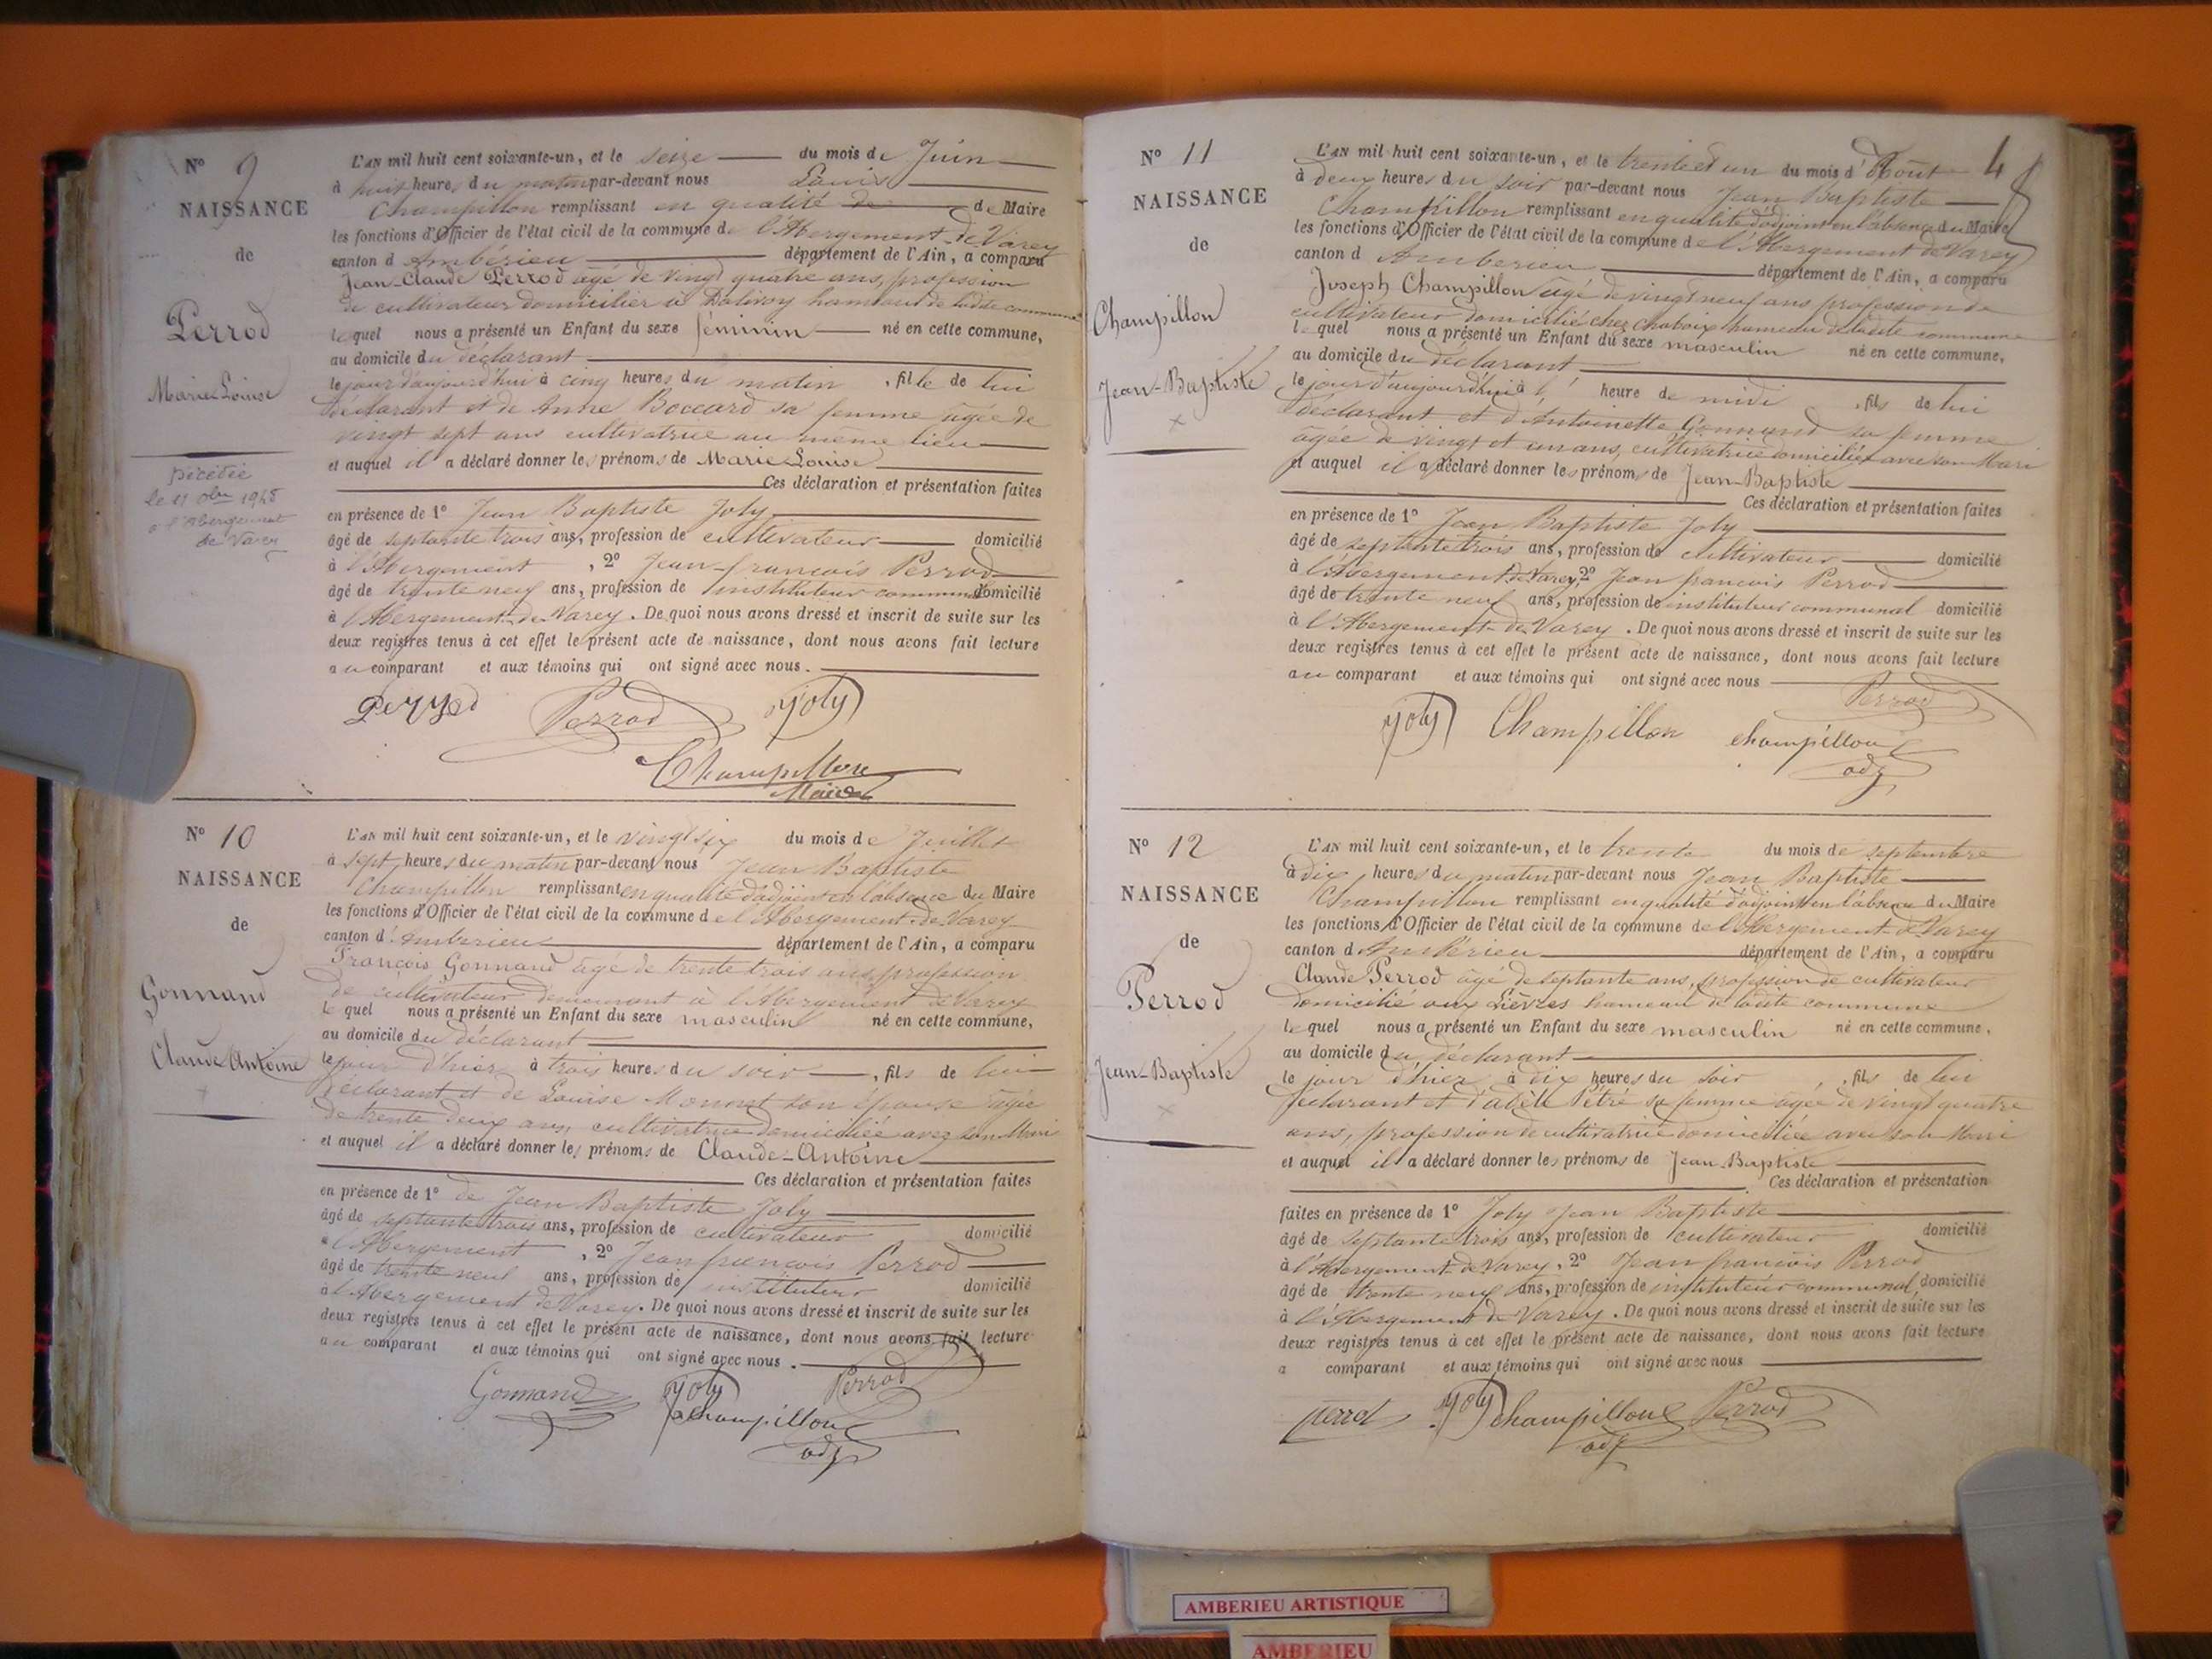 N° 9
NAISSANCE
de
Perrod
Marie Louise
Décédée
le 11 obre
à l'Abergement
de Varey
L'AN mil huit cent soixante-un, et le seize du mois de Juin
à huit heures du matin par-devant nous Louis
Champillon remplissant en qualité de de Maire
les fonctions d'Officier de l'état civil de la commune de l'Abergement-de-Varey
canton d'Ambérieu département de l'Ain, a comparu
Jean-Claude Perrod âgé de vingt quatre ans, profession
de cultivateur domicilier à Dalivoy hameau de ladite commune
lequel nous a présenté un Enfant du sexe féminin né en cette commune,
au domicile du déclarant
le jour d'aujourd'hui à cinq heures du matin, fille de lui
déclarant et de Anne Boccard sa femme âgée de
vingt sept ans cultivatrice au même lieu
et auquel il a déclaré donner les prénoms de Marie Louise
Ces déclaration et présentation faites
en présence de 1° Jean Baptiste Joly
âgé de septante trois ans, profession de cultivateur domicilié
à l'Abergement, 2° Jean-francois Perrod
âgé de trente neuf ans, profession de instituteur communal domicilié
à l'Abergement-de-Varey. De quoi nous avons dressé et inscrit de suite sur les
deux registres tenus à cet effet le présent acte de naissance, dont nous avons fait lecture
au comparant et aux témoins qui ont signé avec nous.
Perrod Perrod Joly
Champillon
Maire
N° 10
NAISSANCE
de
Gonnand
Claude Antoine
L'AN mil huit cent soixante-un, et le vingt six du mois de Juillet
à sept heures du matin par-devant nous Jean Baptiste
Champillon remplissant en qualité d'adjoint en l'absence du Maire
les fonctions d'Officier de l'état civil de la commune de l'Abergement-de-Varey
canton d'Amberieu département de l'Ain, a comparu
François Gonnand âgé de trente trois ans, profession
de cultivateur demeurant à l'Abergement de Varey
lequel nous a présenté un Enfant du sexe masculin né en cette commune,
au domicile du déclarant
le jour d'hier à trois heures du soir, fils de lui
déclarant et de Louise Monnet son épouse âgée
de trente deux ans, cultivatrice domiciliée avec son Mari
et auquel il a déclaré donner les prénoms de Claude-Antoine
Ces déclaration et présentation faites
en présence de 1° de Jean Baptiste Joly
âgé de septante trois ans, profession de cultivateur domicilié
à l'Abergement, 2° Jean francois Perrod
âgé de trente neuf ans, profession de instituteur domicilié
à l'Abergement de Varey. De quoi nous avons dressé et inscrit de suite sur les
deux registres tenus à cet effet le présent acte de naissance, dont nous avons fait lecture
au comparant et aux témoins qui ont signé avec nous.
Gonnand Joly Perrod
Champillon
adj
4
N° 11
NAISSANCE
de
Champillon
Jean-Baptiste
L'AN mil huit cent soixante-un, et le trente et un du mois d'Août
à deux heures du soir par-devant nous Jean Baptiste
Champillon remplissant en qualité d'adjoint en l'absence du Maire
les fonctions d'Officier de l'état civil de la commune de l'Abergement de Varey
canton d Amberieu département de l'Ain, a comparu
Joseph Champillon agé de vingt neuf ans profession de
cultivateur domicilié chez Chaboix hameau de ladite commune
lequel nous a présenté un Enfant du sexe masculin né en cette commune,
au domicile du déclarant
le jour d'aujourd'hui à heure de midi, fils de lui
déclarant et d'Antoinette Gonnand sa femme
âgée de vingt et un ans, cultivatrice domiciliée avec son Mari
et auquel il a déclaré donner les prénoms de Jean-Baptiste
Ces déclaration et présentation faites
en présence de 1° Jean Baptiste Joly
âgé de septante trois ans, profession de cultivateur domicilié
à l'Abergement de Varey, 2° Jean francois Perrod
âgé de trente neuf ans, profession de instituteur communal domicilié
à l'Abergement-de-Varey. De quoi nous avons dressé et inscrit de suite sur les
deux registres tenus à cet effet le présent acte de naissance, dont nous avons fait lecture
au comparant et aux témoins qui ont signé avec nous
Perrod
Joly Champillon champillon
adj
N° 12
NAISSANCE
de
Perrod
Jean-Baptiste
L'AN mil huit cent soixante-un, et le trente du mois de septembre
à dix heures du matin par-devant nous Jean Baptiste
Champillon remplissant en qualité d'adjoint en l'absence du Maire
les fonctions d'Officier de l'état civil de la commune de l'Abergement de Varey
canton d'Ambérieu département de l'Ain, a comparu
Claude Perrod âgé de septante ans, profession de cultivateur
domicilié aux Lièvres hameau de ladite commune
lequel nous a présenté un Enfant du sexe masculin né en cette commune,
au domicile du déclarant
le jour d'hier à dix heures du soir, fils de lui
déclarant et d'adèle Pétré sa femme agée de vingt quatre
ans, profession de cultivatrice domiciliée avec son Mari
et auquel il a déclaré donner les prénoms de Jean-Baptiste
Ces déclaration et présentation
faites en présence de 1° Joly Jean Baptiste
âgé de septante trois ans, profession de cultivateur domicilié
à l'Abergement-de-Varey, 2° Jean francois Perrod
âgé de trente neuf ans, profession de instituteur communal, domicilié
à l'Abergement de Varey. De quoi nous avons dressé et inscrit de suite sur les
deux registres tenus à cet effet le présent acte de naissance, dont nous avons fait lecture
a comparant et aux témoins qui ont signé avec nous
perrod Joly champillon Perrod
adj
AMBERIEU ARTISTIQUE
AMBERIEU